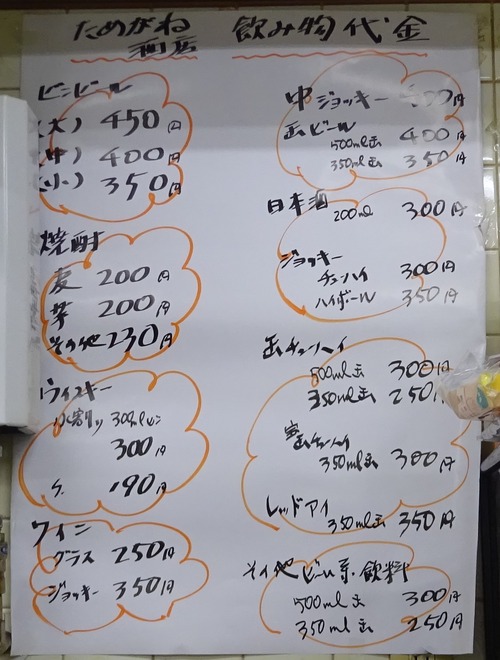 ためがね酒店 飲み物代金
ビンビール
(大) 450円
(中) 400円
(小) 350円
焼酎
麦 200円
芋 200円
その他 230円
ウイスキー
水割り 300mlビン
300円
190円
ワイン
グラス 250円
ジョッキー 350円
中ジョッキー 400円
缶ビール
500ml缶 400円
350ml缶 350円
日本酒 200ml 300円
ジョッキー
チューハイ 300円
ハイボール 350円
缶チューハイ
500ml缶 300円
350ml缶 250円
缶チューハイ
350ml缶 300円
レッドアイ
350ml缶 350円
その他ビール系・飲料
500ml缶 300円
350ml缶 250円